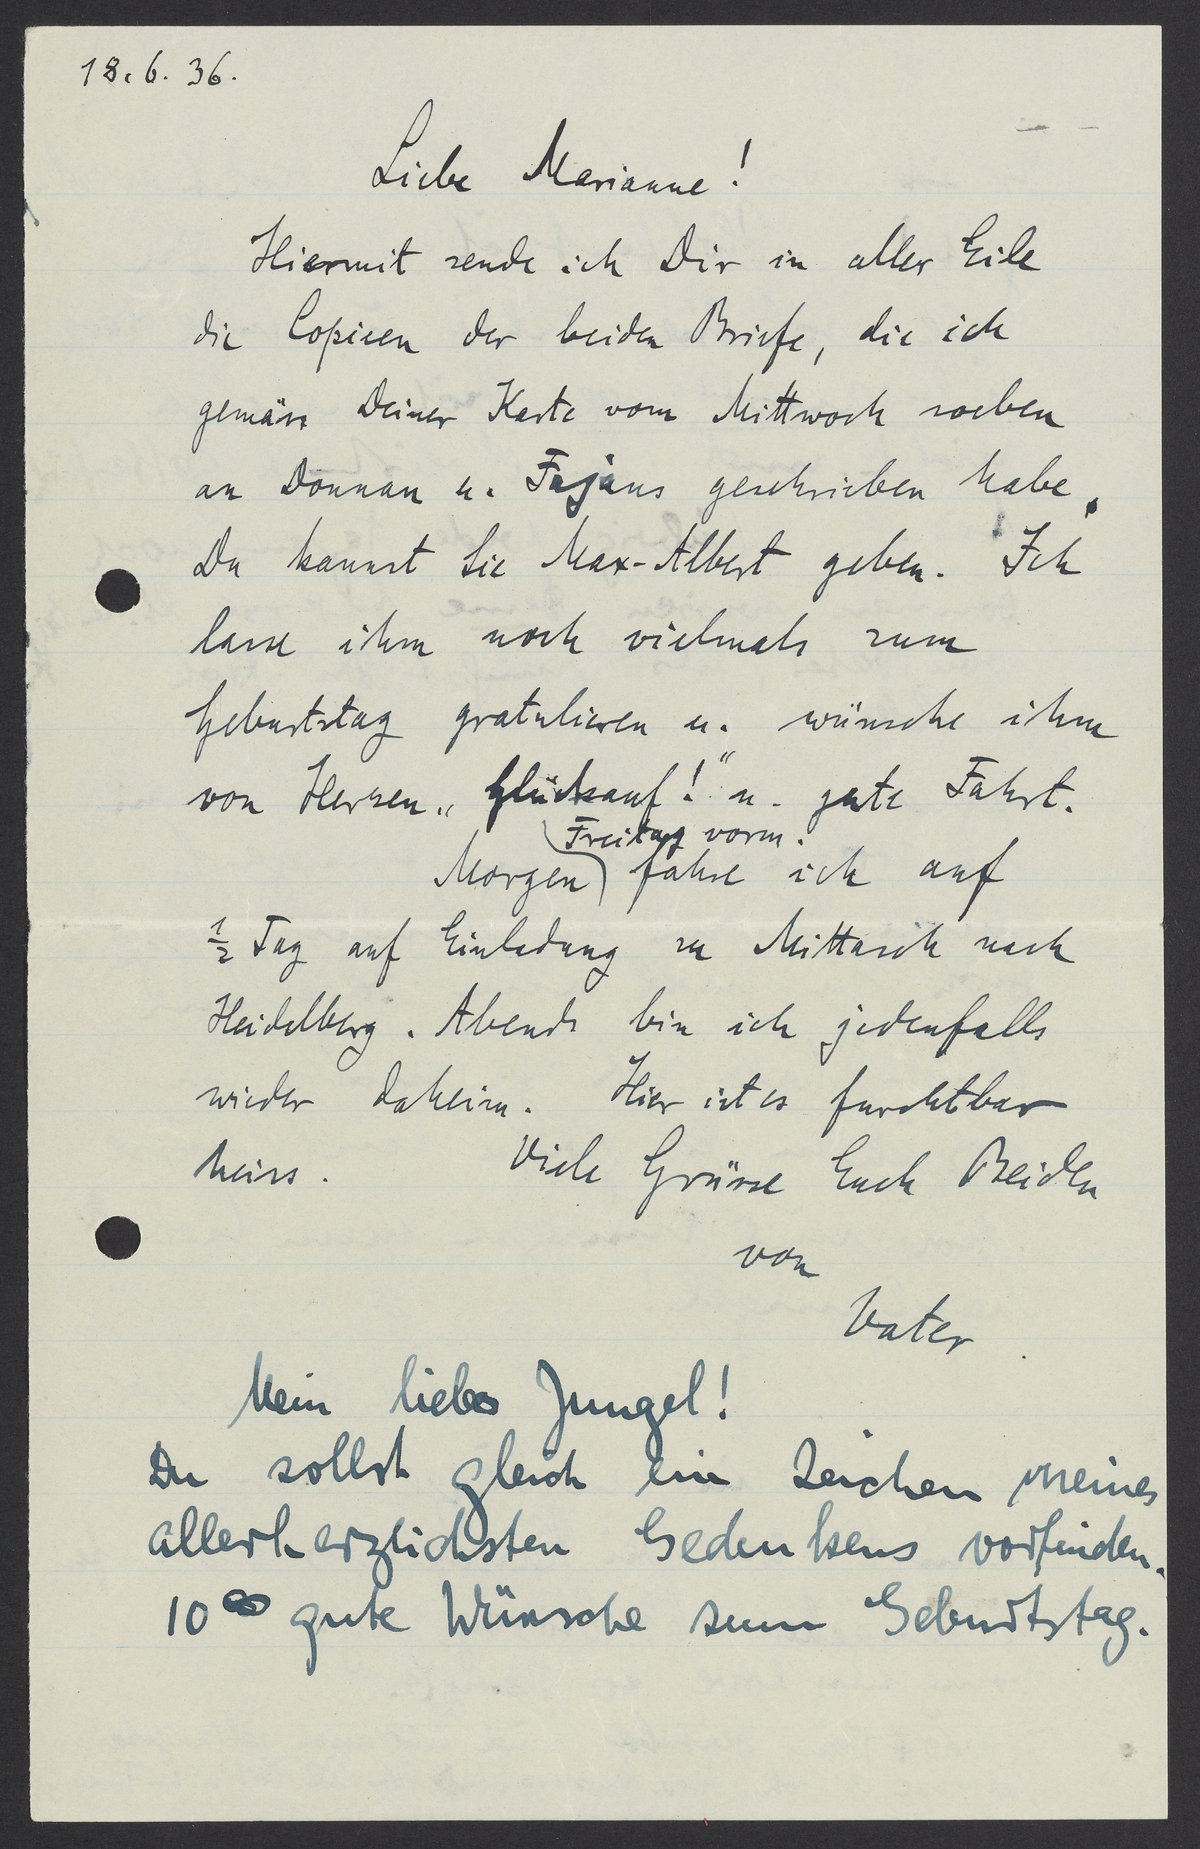 18. 6. 36.
Liebe Marianne!
Hiermit sende ich Dir in aller Eile
die Copieen der beiden Briefe, die ich
gemäss Deiner Karte vom Mittwoch soeben
an Donnan u. Fajans geschrieben habe.
Du kannst sie Max-Albert geben. Ich
lasse ihm noch vielmals zum
Geburtstag gratulieren u. wünsche ihm
von Herzen „Glückauf!" u. gute Fahrt.
Freitag vorm.
Morgen fahre ich auf
1/2 Tag auf Einladung zu Mittasch nach
Heidelberg. Abends bin ich jedenfalls
wieder daheim. Hier ist es furchtbar
heiss. Viele Grüsse Euch Beiden
von
Vater
Mein liebes Jungel!
Du sollst gleich ein Zeichen meines
allerherzlichsten Gedenkens vorfinden.
10^∞ gute Wünsche zum Geburtstag.